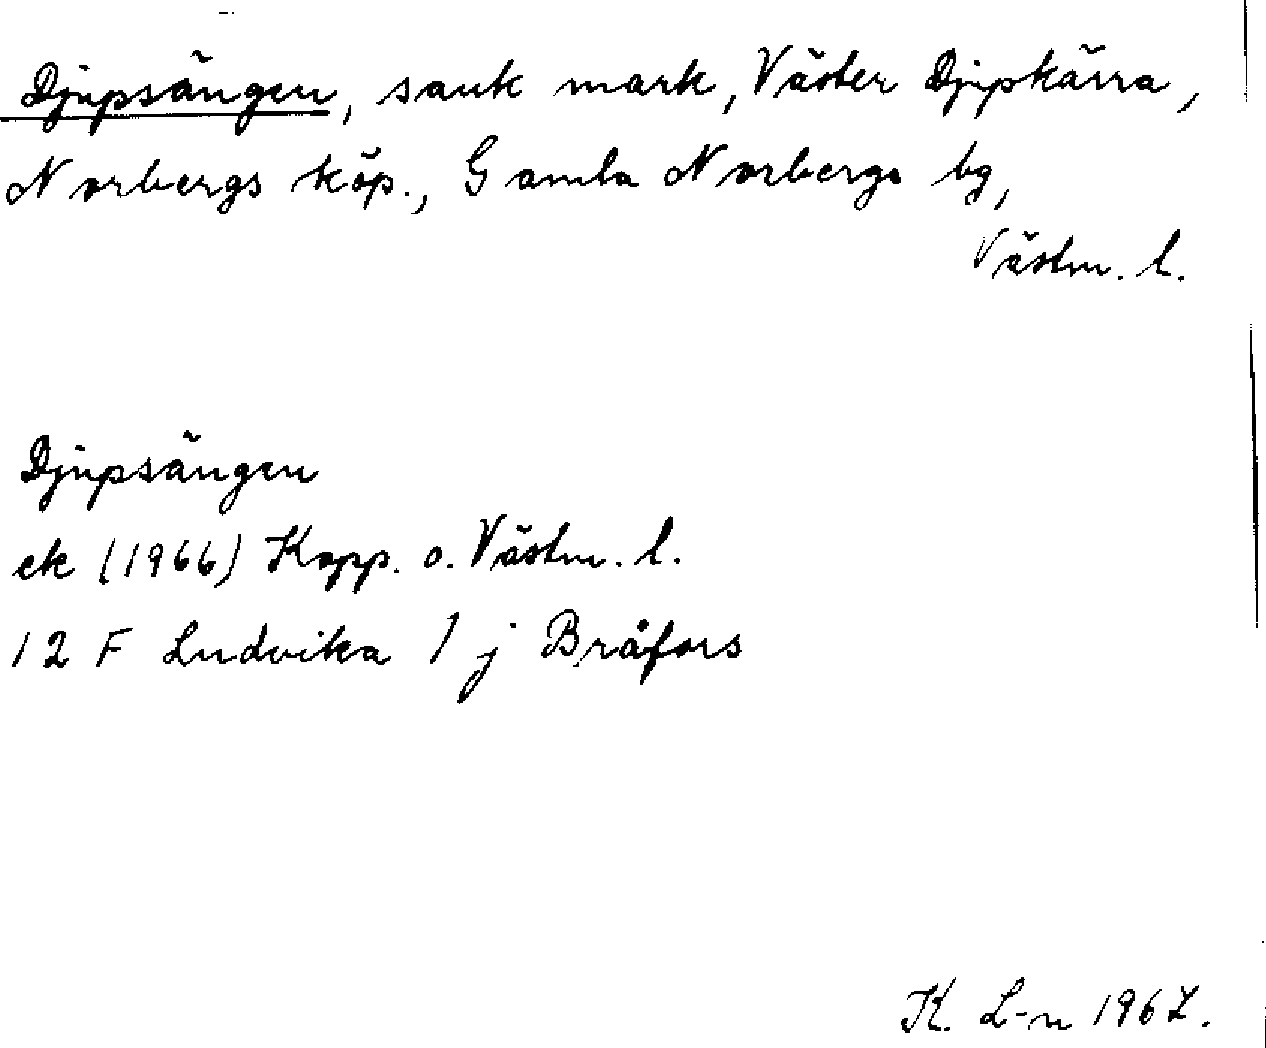 Djupsängen, sank mark, Väster Djupkärra,
Norbergs köp., Gamla Norbergs bg,
Västm. l.
Djupsängen
ek (1966) Kopp. o. Västm. l.
12 F Ludvika 1 j Bråfors
K. L-n 1967.